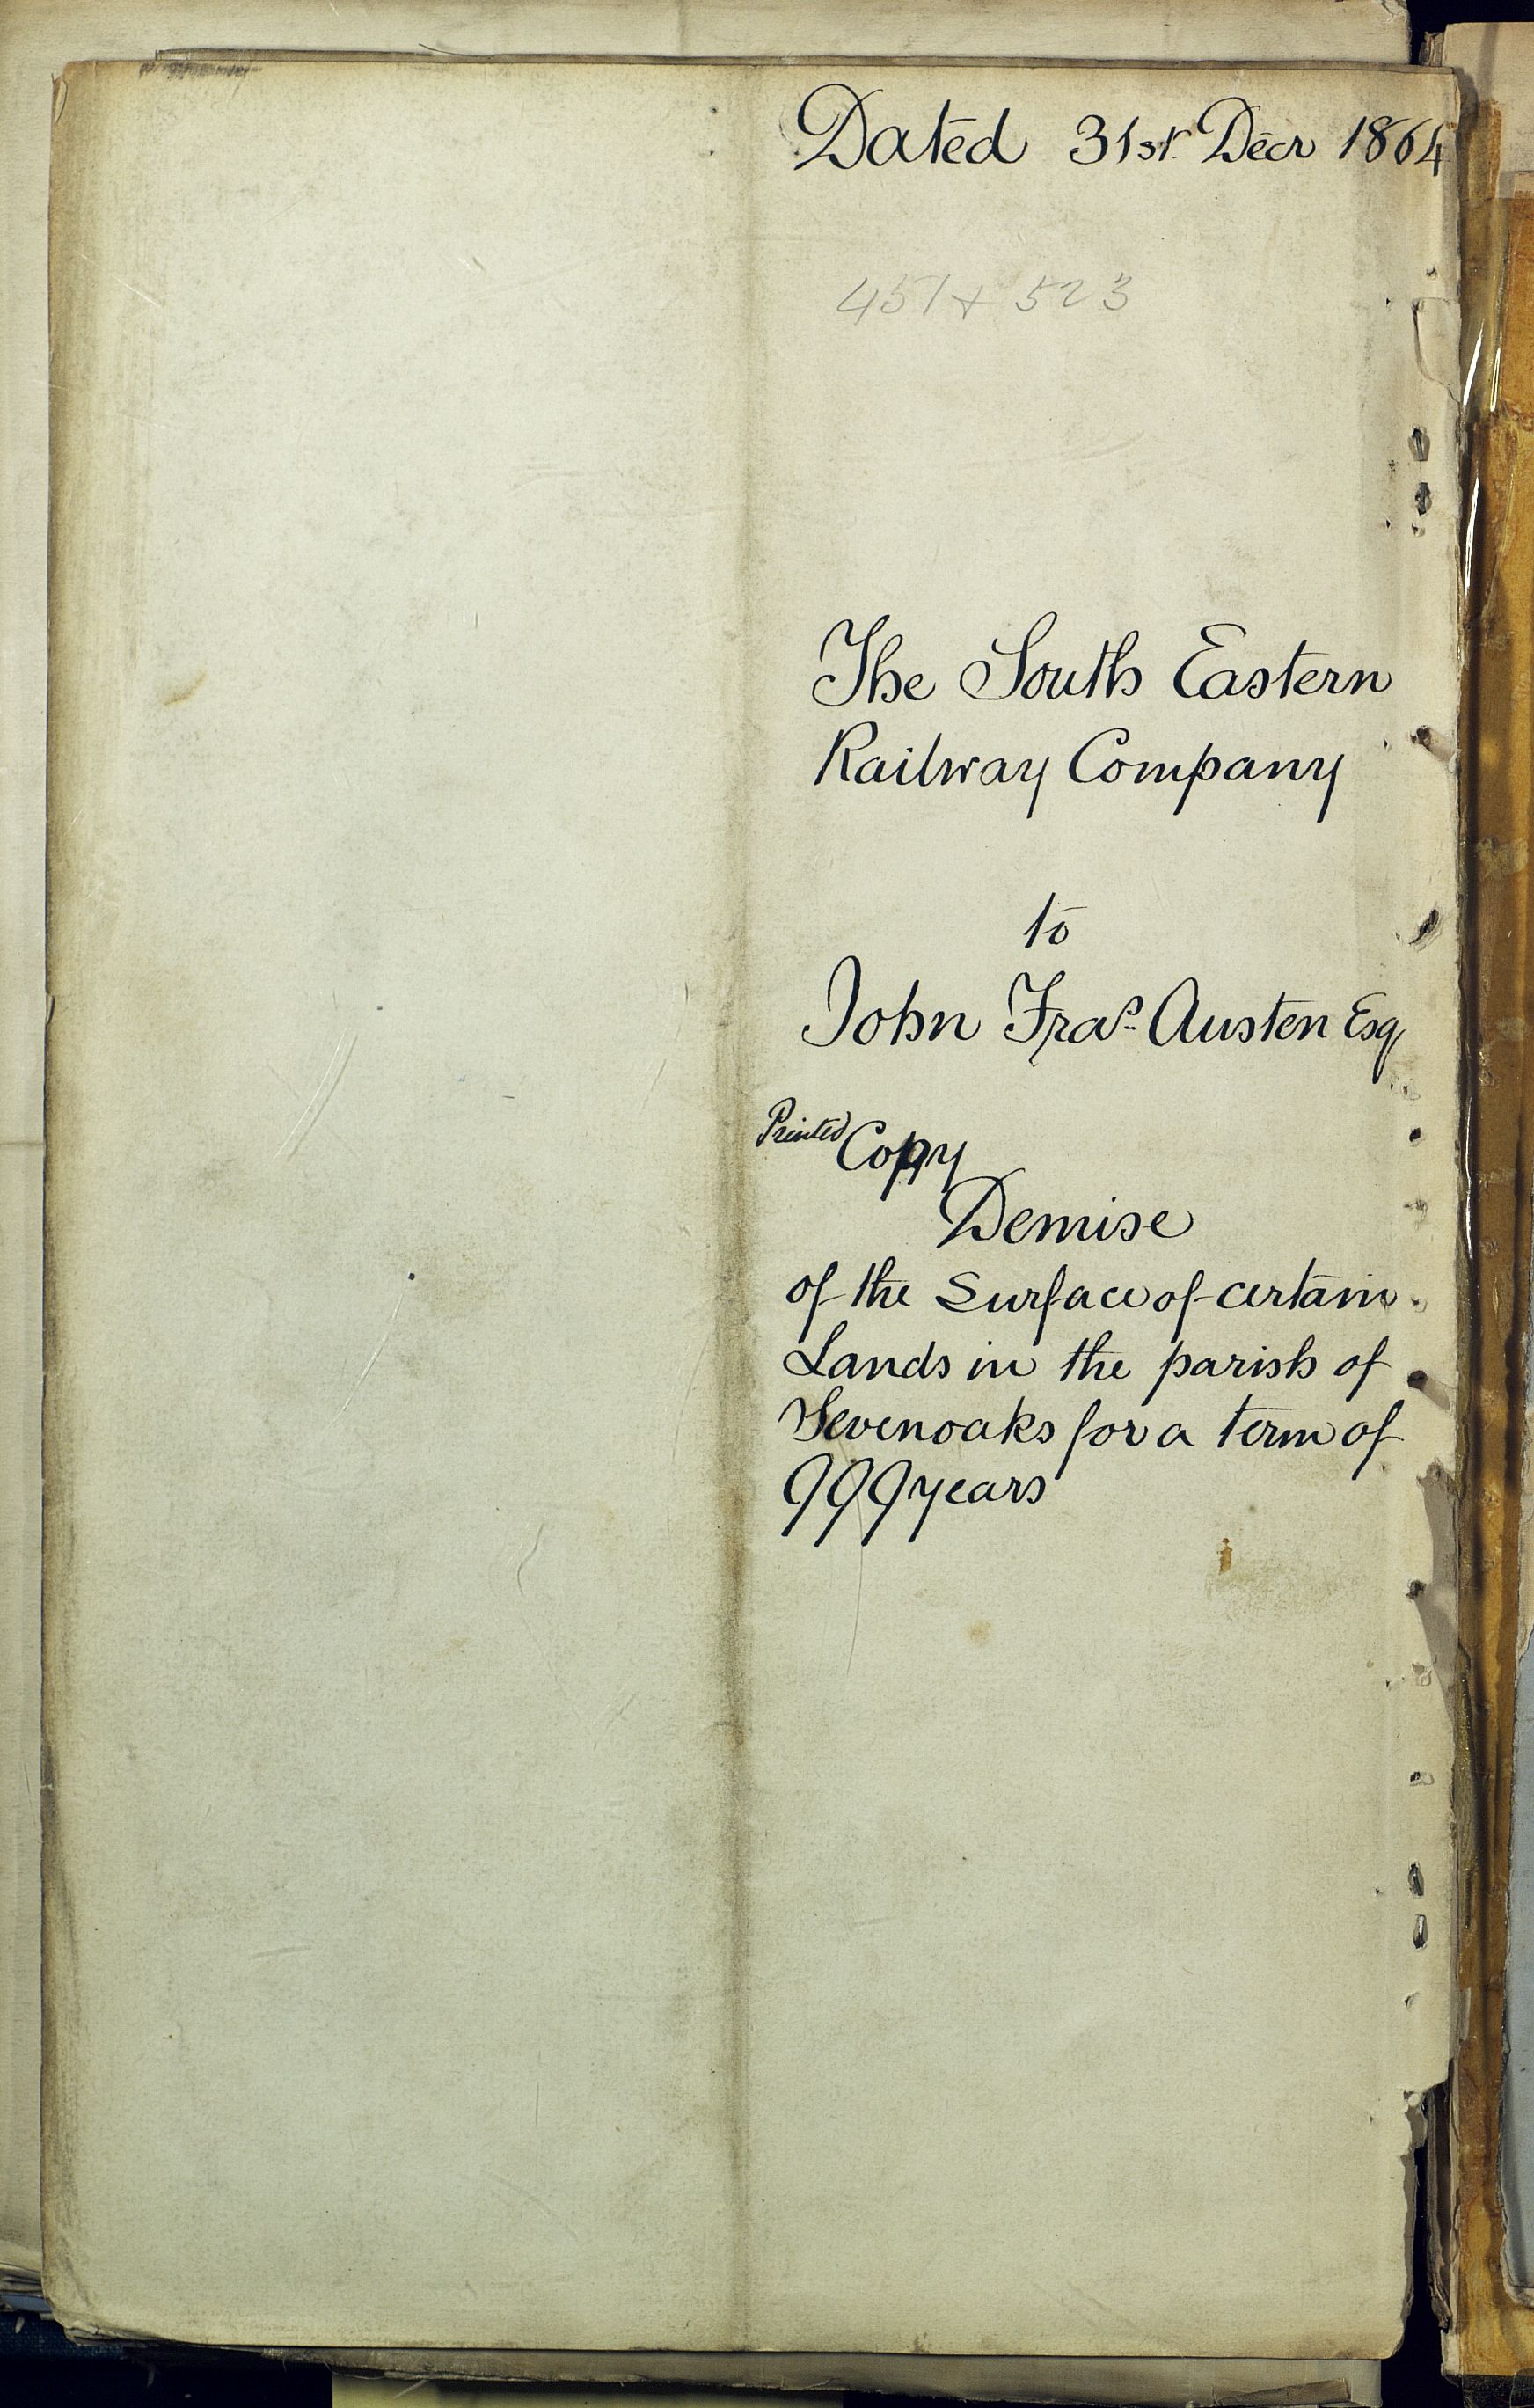 Dated 31st. Decr 1864
451 + 523
The South Eastern
Railway Company
to
John Fras. Austen Esq
Printed Copy
Demise
of the Surface of certain
Lands in the parish of
Sevenoaks for a term of
999 years